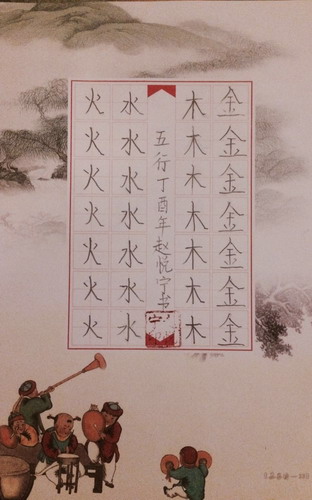 金金金金金金金
木木木木木木木
五行丁酉年赵悦宁书
水水水水水水水
火火火火火火火